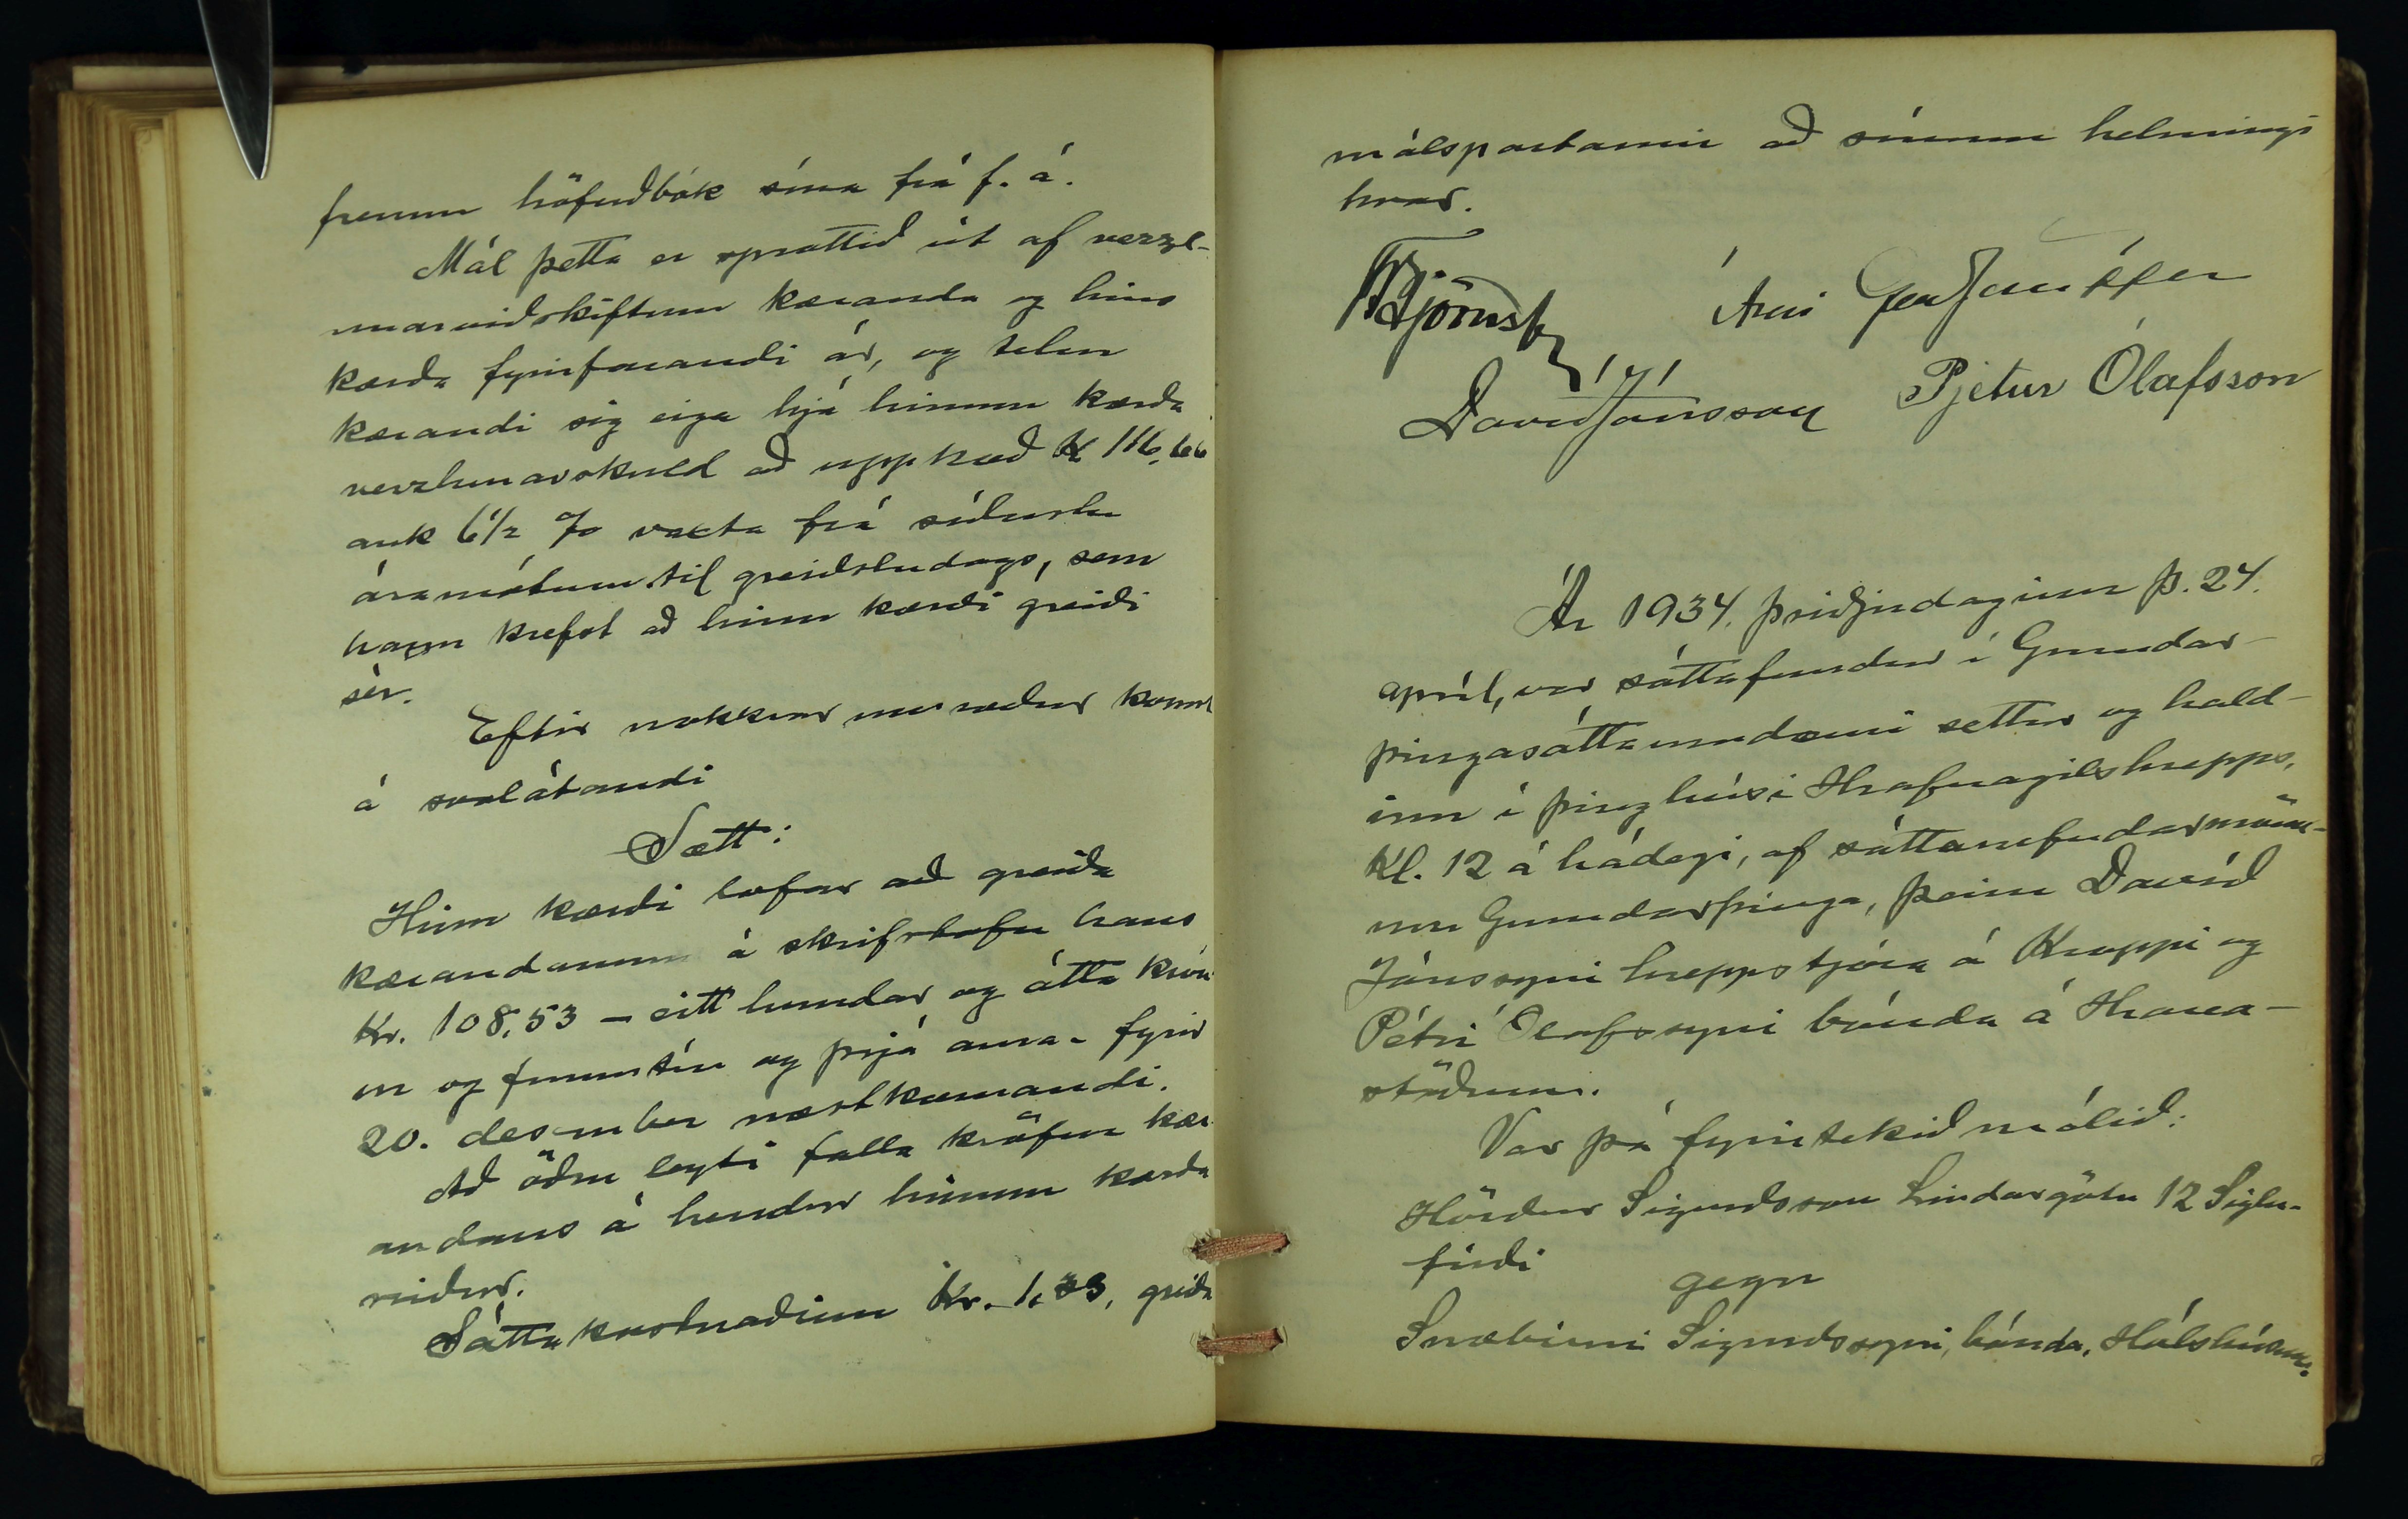 framm höfuðbók sína frá f. á.
Mál þetta er sprottið út af verzl-
unarviðskiftum kæranda og hins
kærða fyrirfarandi ár, og telur
kærandi sig eiga hjá hinum kærða
verzlunarskuld að upphæð kr 116,66
auk 6 1/2 % vaxta frá síðustu
áramótum til greiðsludags, sem
hann krefst að hinn kærði greiði
sér.
Eftir nokkrar umræður komst
á svolátandi
Sætt:
Hinn kærði lofar að greiða
kærandanum á skrifstofu hans
Kr. 108,53 – eitt hundar og átta krón
ur og fimmtíu og þrjá aura - fyrir
20. desember næstkomandi.
Að öðru leyti falla kröfur kær-
andans á hendur hinum kærða
niður.
Sáttakostnaðinn Kr. 1,33, greiða
málspartarnir að sínum helmingi
hvor.
Björnsson Árni
Davíð Jónsson Pjetur Ólafsson
Ár 1934, þriðjudaginn þ. 24.
apríl, var sáttafundur í Grundar-
þingasáttaumdæmi settur og hald-
inn í þinghúsi Hrafnagilshrepps,
Kl. 12 á hádegi, af sáttanefndarmönn-
um Grundarþinga, þeim Davíð
Jónssyni hreppstjóra á Kroppi og
Pétri Ólafssyni bónda á Hrana-
stöðum.
Var þá fyrirtekið málið:
Hörður Sigurðsson Lindargötu 12 Siglu-
firði
gegn
Snæbirni Sigurðssyni, bónda, Hólshúsum.